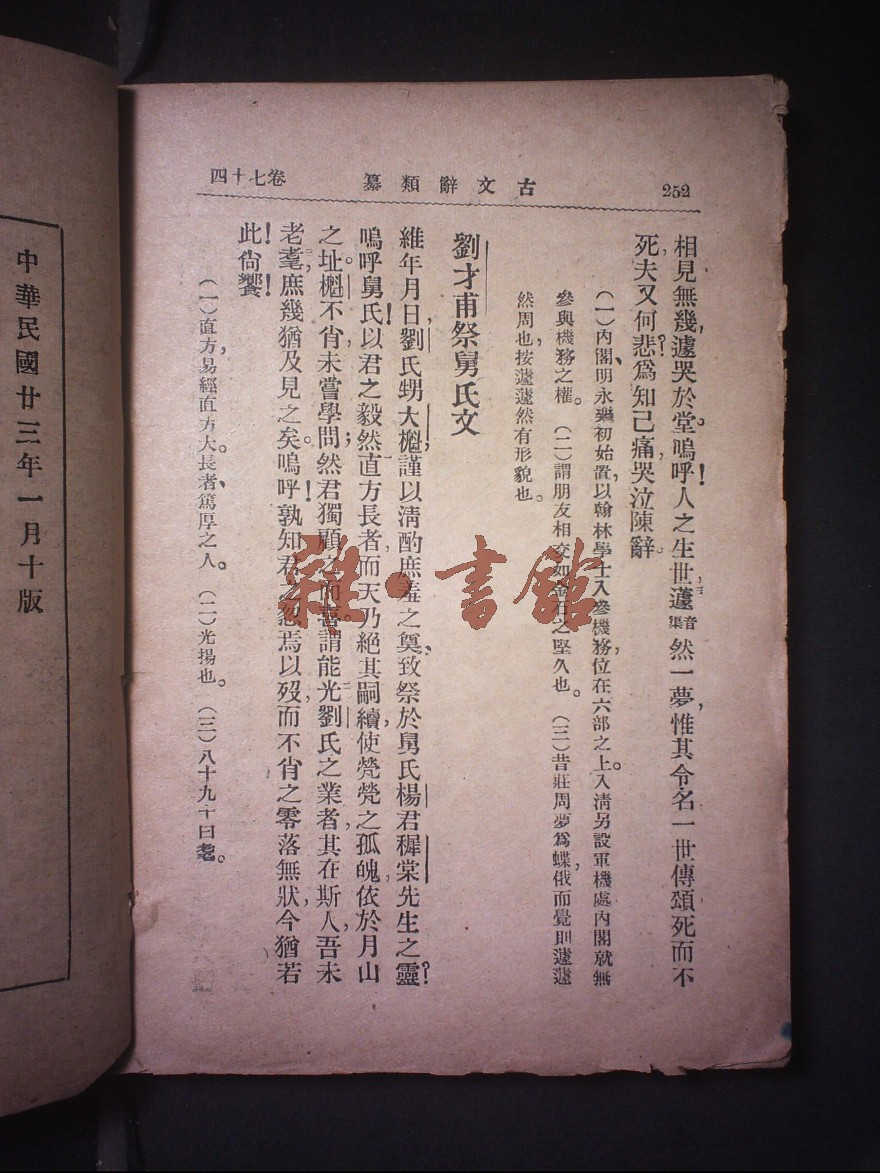 252
古文辭類纂
卷七十四
相見無幾，遽哭於堂。嗚呼！人之生世，蘧音集然一夢，惟其令名，一世傳頌，死而不
死，夫又何悲？爲知己痛，哭泣陳辭。
（一）內閣，明永樂初始置，以翰林學士入參機務，位在六部之上。入清另設軍機處，內閣就無
參與機務之權。（二）謂朋友相交如金石之堅久也。（三）昔莊周夢爲蝶，俄而覺，則蘧蘧
然周也，按蘧蘧然有形貌也。
劉才甫祭舅氏文
維年月日，劉氏甥大櫆，謹以清酌庶羞之奠，致祭於舅氏楊君穉棠先生之靈？
嗚呼舅氏！以君之毅然直方長者，而天乃絕其嗣續，使煢煢之孤魄，依於月山
之址。櫆不肖，未嘗學問；然君獨顧之而喜。謂能光劉氏之業者，其在斯人，吾未
老耄，庶幾猶及見之矣。嗚呼！孰知君之忽焉以歿，而不肖之零落無狀，今猶若
此！尙饗！
（一）直方，易經直方大。長者，篤厚之人。（二）光揚也。（三）八十九十曰耄。
中華民國廿三年一月十版
雜·書館